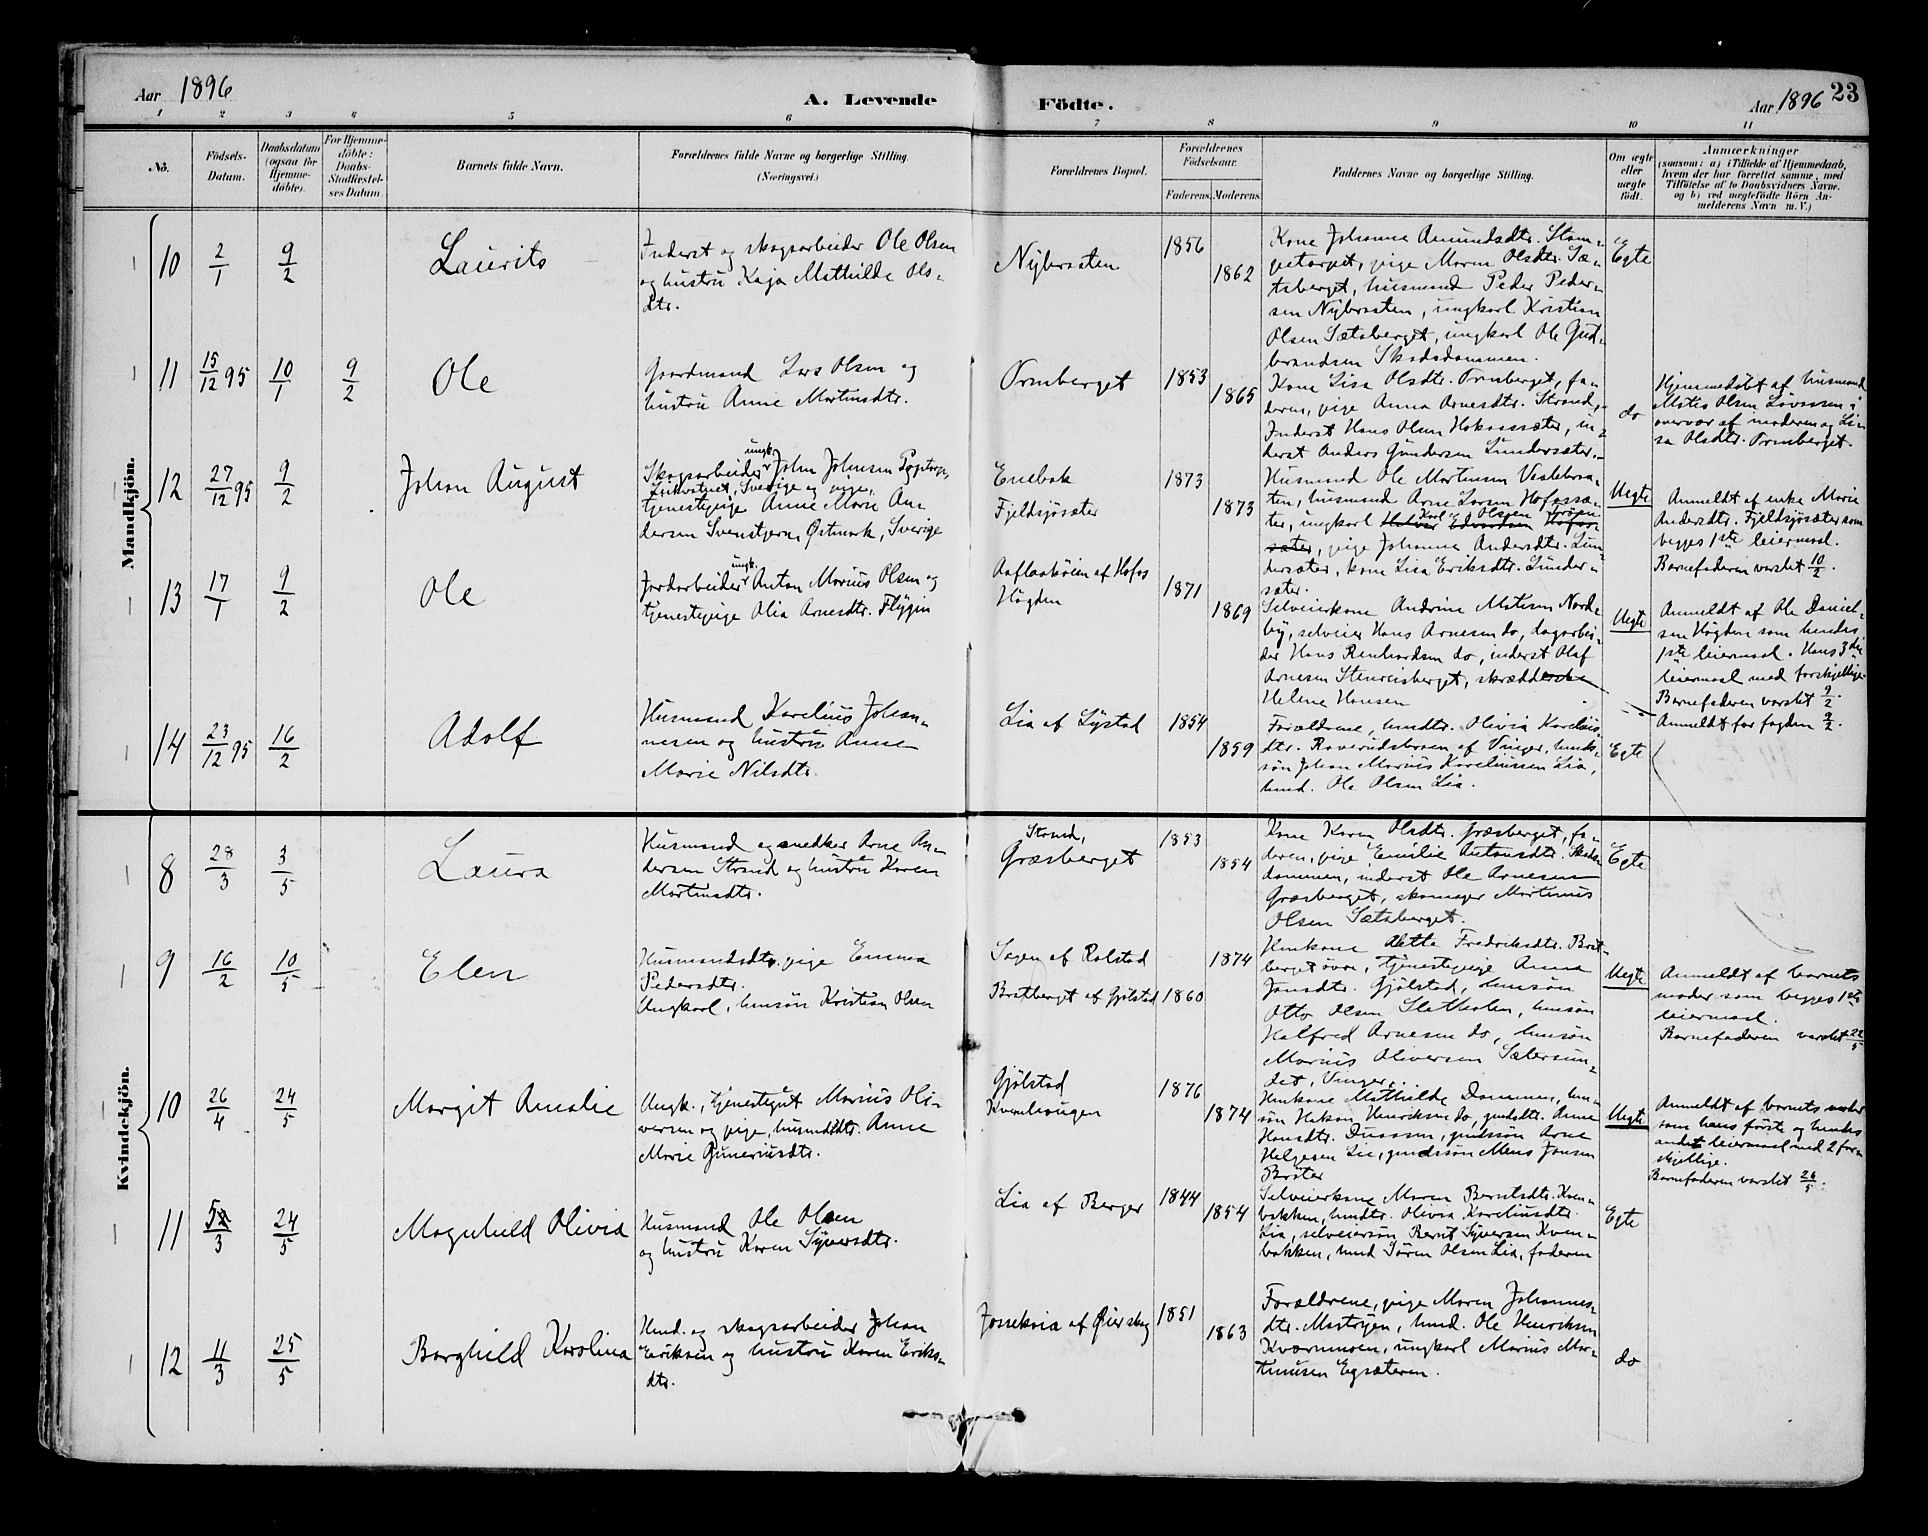 Aar 1896
A. Levende
Födte.
Aar 1896
23
1 2 3 4 5 6 7 8 9 10 11
No.
Födsels-
Datum.
Daabsdatum
(ogsaa for
Hjemme-
döbte).
For Hjemme-
döbte:
Daabs-
Stadfæstel-
ses Datum.
Barnets fulde Navn.
Forældrenes fulde Navne og borgerlige Stilling.
(Næringsvei.)
Forældrenes Bopæl.
Forældrenes
Födselsaar.
Faderens. Moderens.
Faddernes Navne og borgerlige Stilling.
Om ægte
eller
uægte
födt.
Anmærkninger
(saasom: a) i Tilfælde af Hjemmedaab,
hvem der har forrettet samme, med
Tilföielse af to Daabsvidners Navne,
og b) ved uægtefödte Börn An-
melderens Navn m. V.)
Mandkjön.
10
2/1
9/2
Laurits
Inderst og skogsarbeider Ole Olsen
og hustru Kaja Mathilde Ols-
dtr.
Nybraaten
1856
1862
Kone Johanne Amundsdtr. Stom-
petorpet, pige Maren Olsdtr. Sæ-
tsberget, husmand Peder Peder-
sen Nybraaten, ungkarl Kristian
Olsen Sætsberget, ungkarl Ole Gud-
brandsen Skadsdammen.
Egte
11
15/12 95
10/1
9/2
Ole
Gaardmand Lars Olsen og
hustru Anne Martinsdtr.
Ormberget
1853
1865
Kone Lisa Olsdtr. Ormberget, fa-
deren, pige Anna Arnesdtr. Strand,
Inderst Hans Olsen Hokaassæter, in-
derst Anders Gundersen Lundersæter.
do
Hjemmedöbt af husmand
Mats Olsen Lövaasen i
overvær af moderen og Li-
sa Olsdtr. Ormberget.
12
27/12 95
9/2
Johan August
Skogsarbeider ungk. John Johnsen
Sverige og pige,
tjenestepige Anne Marie An-
dersen Svenstjern, Östmark, Sverige
Enebak
Fjeldsjösæter
1873
1873
Husmand Ole Martinsen Vestbraa-
ten, husmand Arne Larsen Hofossæ-
ter, ungkarl Karl Olsen
sæter, pige Johanna Andersdtr. Lun-
dersæter, kone Lisa Eriksdtr. Lunder-
sæter.
Uegte
Anmeldt af enke Marie
Andersdtr. Fjeldsjösæter som
begges 1ste leiermaal.
Barnefaderen varslet 10/2.
13
17/1
9/2
Ole
Jordarbeider ungk. Anton Marius Olsen og
tjenestepige Olia Arnesdtr. Flygin
Aaflaaköien af Hofos
Högden
1871
1869
Selveierkone Andrine Matsen Nord-
by, selveier Hans Arnesen do, dagarbei-
der Hans Renhardsen do, inderst Olaf
Arnesen Stenersberget, skrædderske
Helene Hansen
Uegte
Anmeldt af Ole Daniel-
sen Högden som hendes
1ste leiermaal. Hans 3die
leiermaal med forskjellige.
Barnefaderen varslet 9/2.
Anmeldt for fogden 9/2.
14
23/12 95
16/2
Adolf
Husmand Karelius Johan-
nesen og hustru Anne
Marie Nilsdtr.
Lia af Lystad
1854
1859
Forældrene, husdtr. Olivia Karelius-
dtr. Roverudsbraaten af Vinger, hus-
søn Johan Marius Kareliussen Lia,
husmd. Ole Olsen Lia.
Egte
Kvindekjön.
8
28/3
3/5
Laura
Husmand og snedker Arne An-
dersen Strand og hustru Karen
Martinsdtr.
Strand,
Græsberget
1853
1854
Kone Karen Olsdtr. Græsberget, fa-
deren, pige Emilie Antonsdtr. Skads-
dammen, inderst Ole Arnesen
Græsberget, skomager Martinus
Olsen Sætsberget.
Egte
9
16/2
10/5
Elen
Husmandsdtr. pige Emma
Pedersdtr.
Ungkarl, hussøn Kristian Olsen
Sagen af Rolstad
Bratberget af Gjölstad
1874
1860
Huskone Alette Fredriksdtr. Brat-
berget övre, tjenestepige Anna
Jonsdtr. Gjölstad, hussøn
Otto Olsen Sletholen, hussøn
Halfred Arnesen do, hussøn
Marius Oliversen Sætersun-
det, Vinger.
Uegte
Anmeldt af barnets
moder som begges 1ste
leiermaal.
Barnefaderen varslet 22/5
10
26/4
24/5
Margit Amalie
Ungk., tjenestegut Marius Oli-
versen og pige, husmdsdtr. Anne
Marie Gunerusdtr.
Gjölstad
Kvernhaugen
1876
1874
Huskone Mathilde Dammen, hus-
søn Hakon Henriksen do, gaardsdtr. Anne
Hansdtr. Dusssen, gaardsøn Arne
Helgesen Lie, gaardsøn Mons Jonsen
Bråter
Uegte
Anmeldt af barnets moder
som hans förste og hendes
andet leiermaal med 2 for-
skjellige.
Barnefaderen varslet 26/5.
11
5/3
24/5
Magnhild Olivia
Husmand Ole Olsen
og hustru Karen Syversdtr.
Lia af Berger
1844
1854
Selveierkone Maren Berntsdtr. Kvern-
bakken, husdtr. Olivia Kareliusdtr.
Lia, selveiersøn Bernt Syversen Kvern-
bakken, husmd Sören Olsen Lia, faderen
Egte
12
11/3
25/5
Borghild Karolina
Husmd. og skogsarbeider Johan
Eriksen og hustru Karen Eriks-
dtr.
Jossekoia af Öierskog
1851
1863
Forældrene, pige Maren Johannes-
dtr. Mastöyen, husmd. Ole Henriksen
Kværnmoen, ungkarl Marius Mar-
tinusen Egsæteren.
do